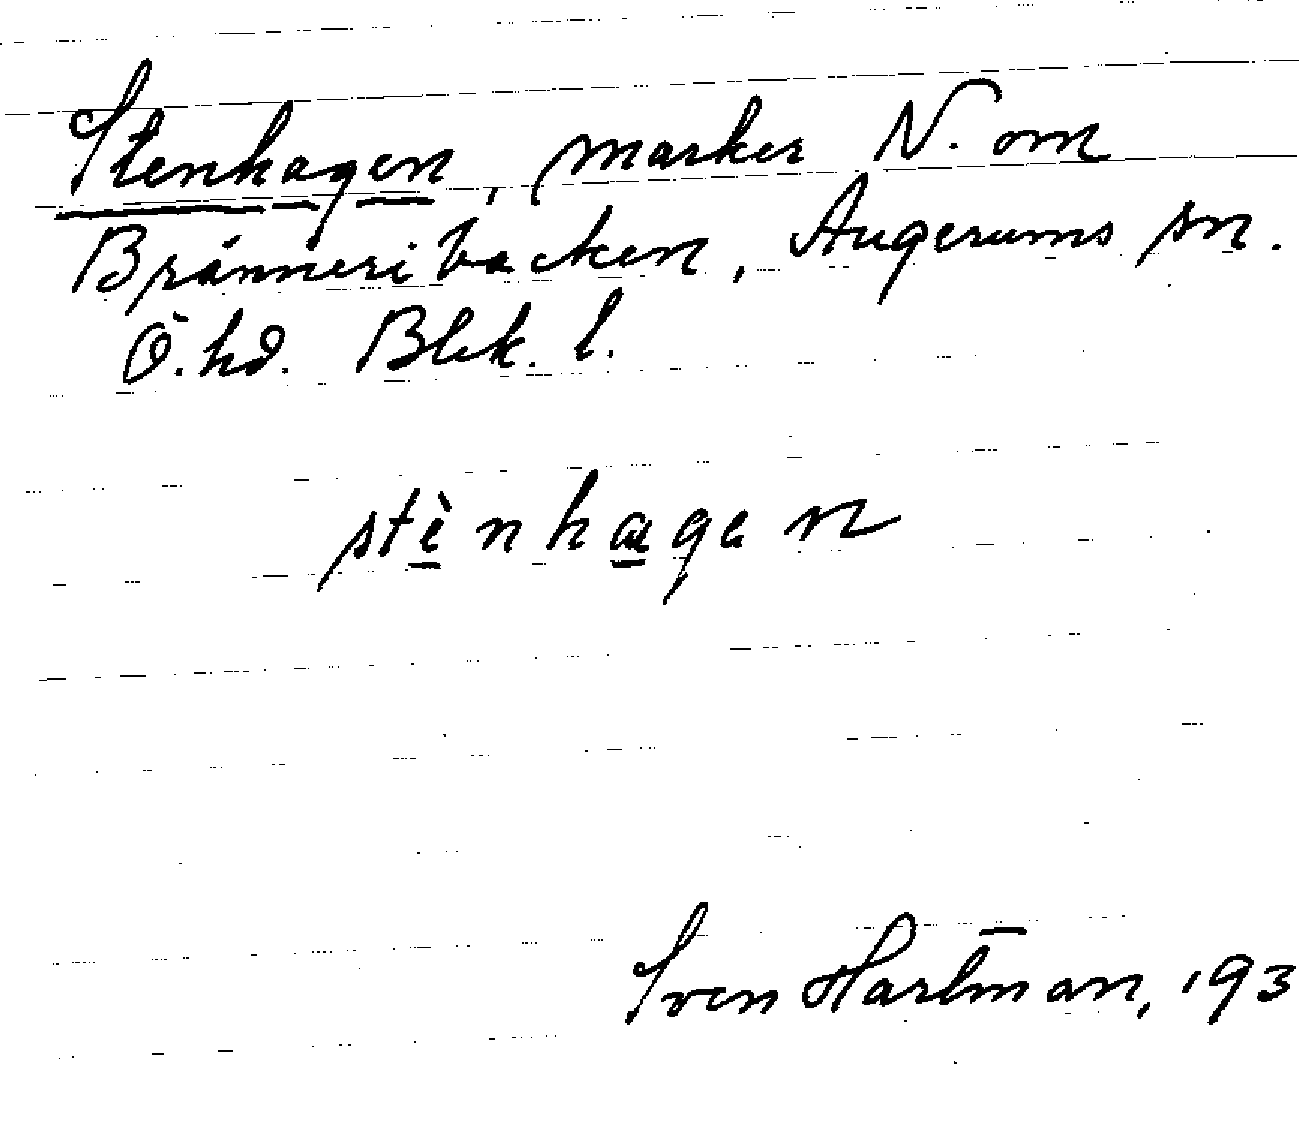 Stenhagen, marker N. om
Bränneribacken, Augerums sn.
Ö. hd. Blek. l.
stènhagan
Sven Hartman, 193